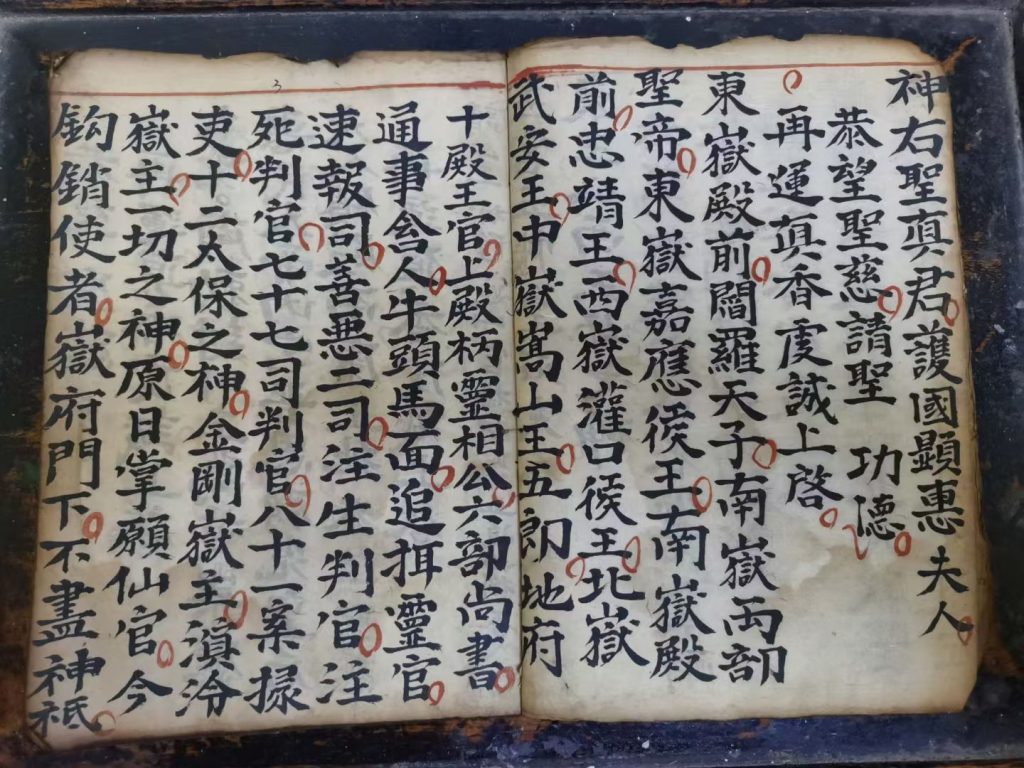 神右聖眞君護國顯惠夫人
恭望聖慈請聖　功德
再運眞香虔誠上啓
東嶽殿前閻羅天子南嶽兩部
聖帝東嶽嘉應侯王南嶽殿
前忠靖王西嶽灌口侯王北嶽
武安王中嶽嵩山王五郎地府
十殿王官上殿柄靈相公六部尚書
通事舍人牛頭馬面追拘靈官
速報司善惡二司注生判官注
死判官七十七司判官八十一案掾
吏十二太保之神金剛嶽主滇泠
嶽主一切之神原日掌願仙官今
鈎銷使者嶽府門下不盡神祇
3